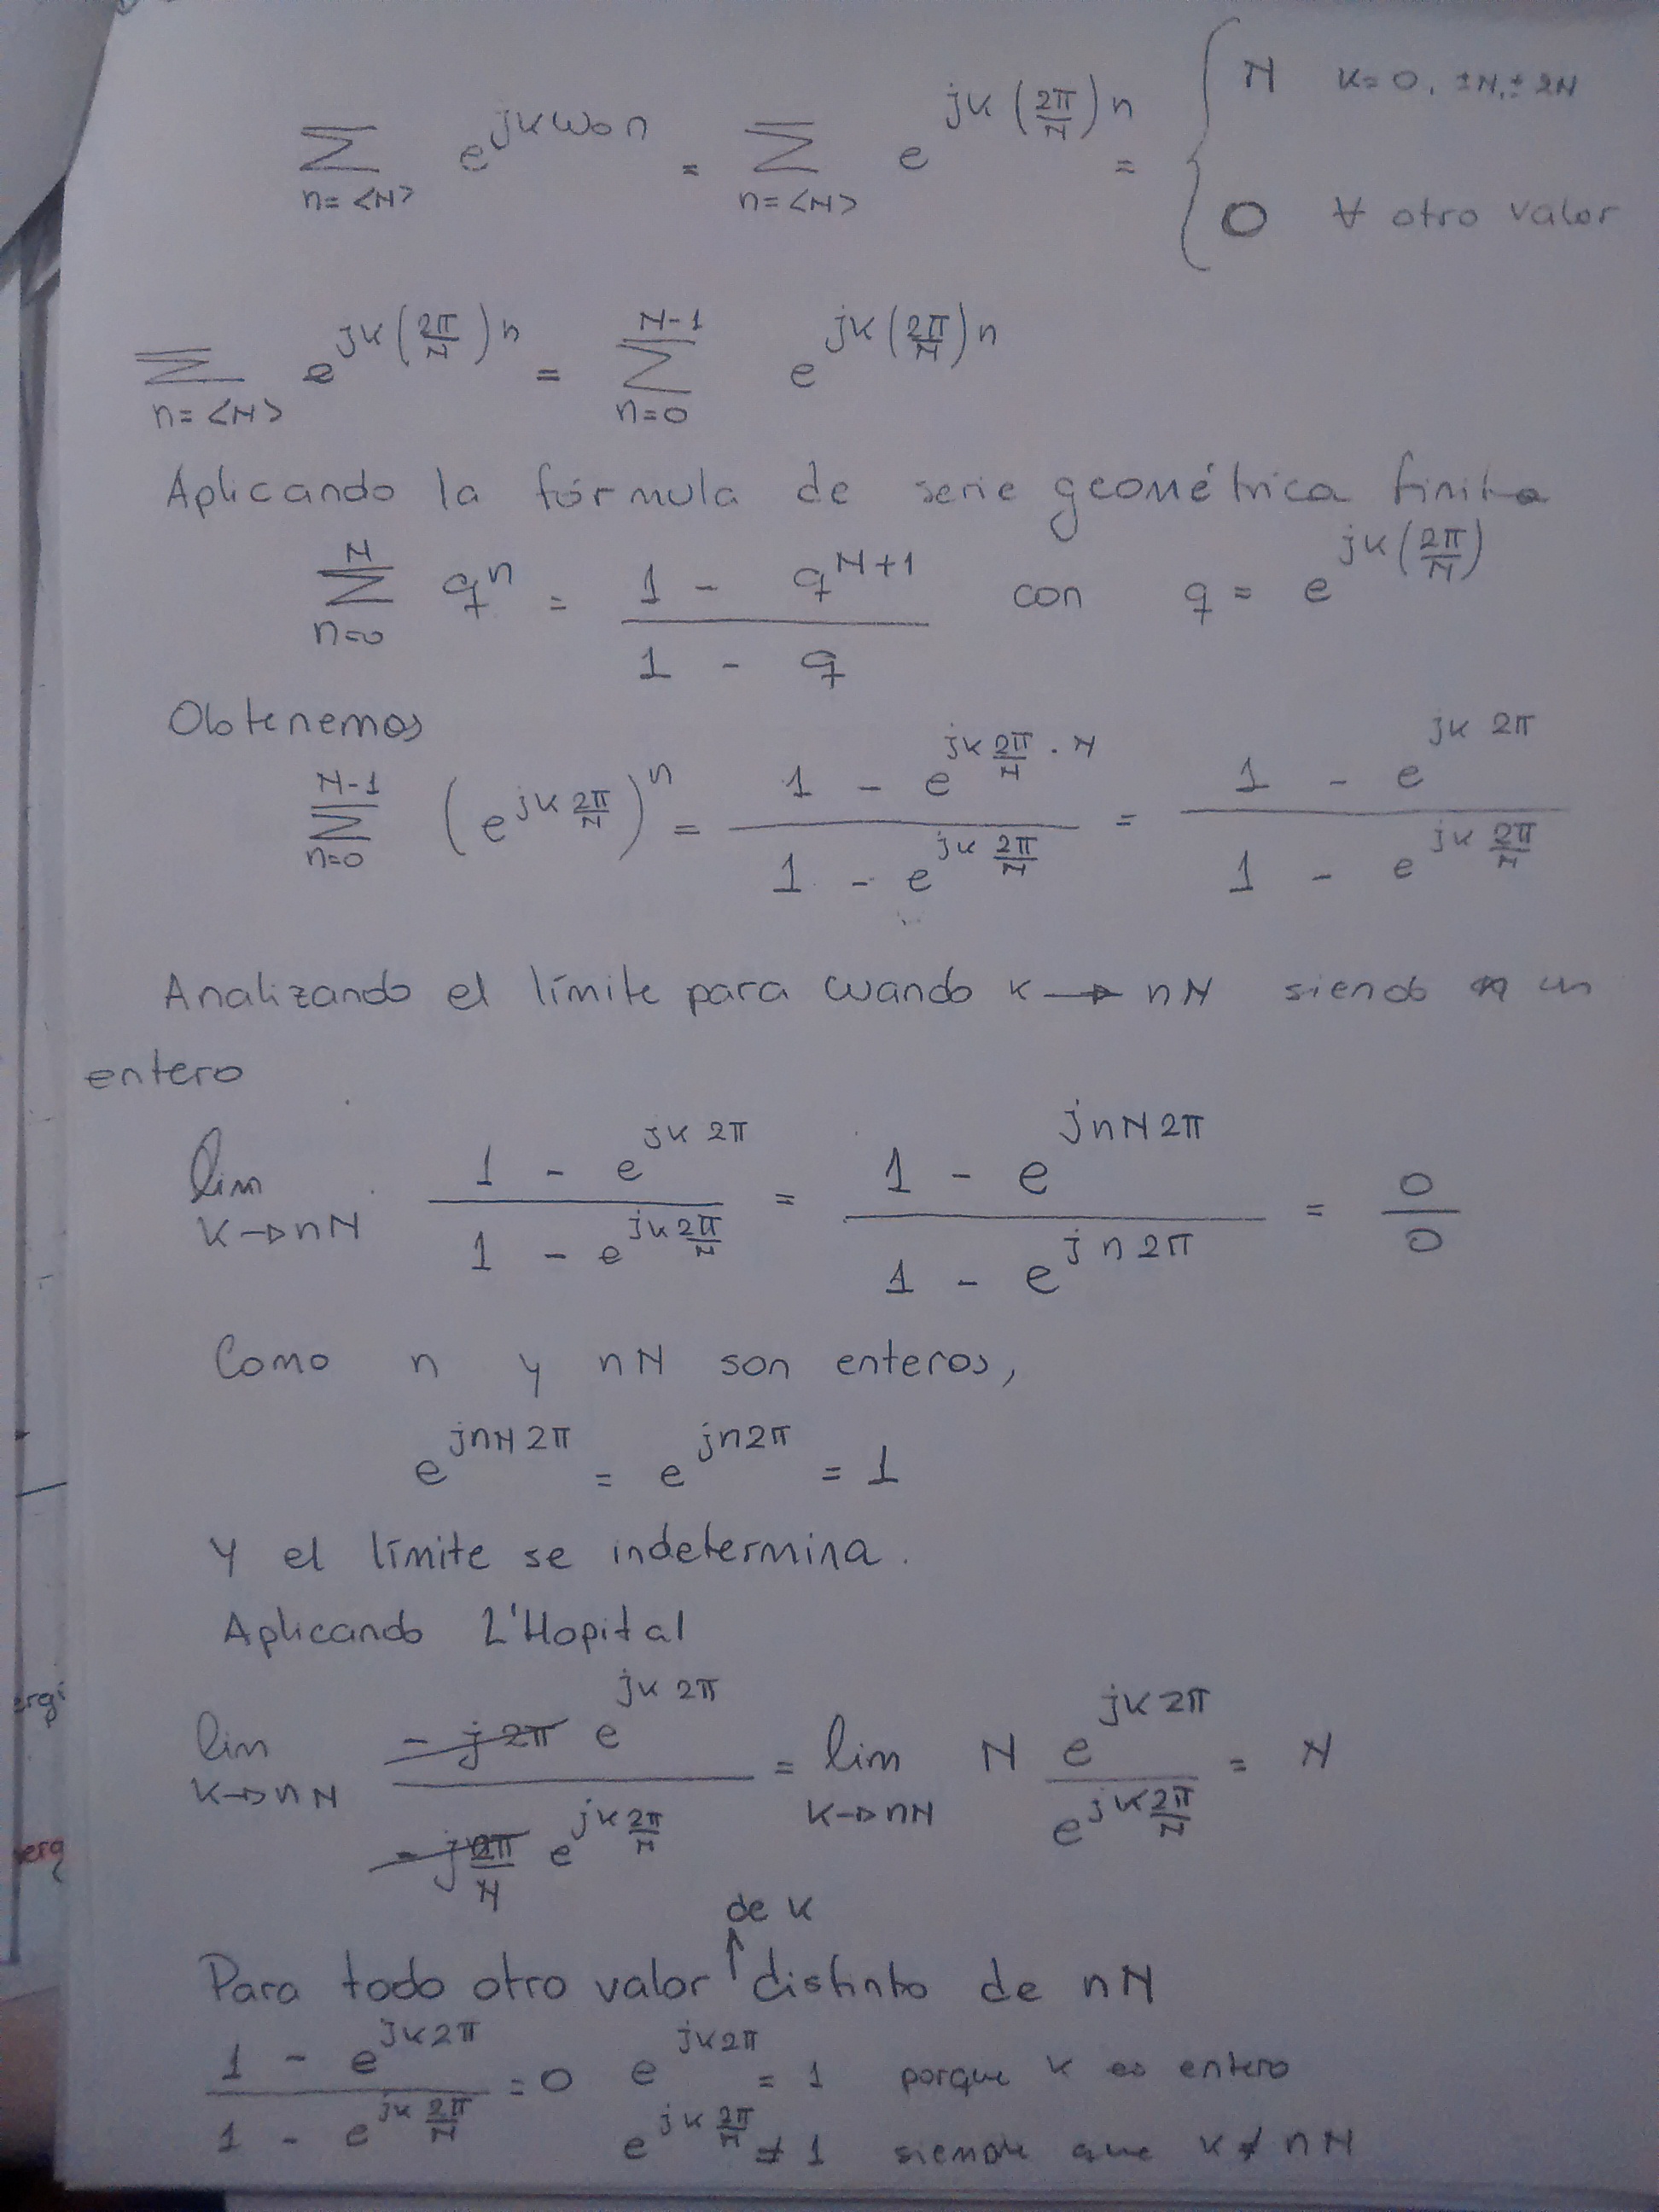 ∑_{n=<N>} e^{jkω₀n} = ∑_{n=<N>} e^{jk(2π/N)n} = { N k=0, ±N, ± 2N
0 ∀ otro valor
∑_{n=<N>} e^{jk(2π/N)n} = ∑_{n=0}^{N-1} e^{jk(2π/N)n}
Aplicando la fórmula de serie geométrica finita
∑_{n=0}^{N} q^n = (1 - q^{N+1})/(1 - q) con q = e^{jk(2π/N)}
Obtenemos
∑_{n=0}^{N-1} (e^{jk 2π/N})^n = (1 - e^{jk 2π/N · N})/(1 - e^{jk 2π/N}) = (1 - e^{jk 2π})/(1 - e^{jk 2π/N})
Analizando el límite para cuando k → nN siendo n un
entero
lim_{k→nN} (1 - e^{jk 2π})/(1 - e^{jk 2π/N}) = (1 - e^{jnN2π})/(1 - e^{jn2π}) = 0/0
Como n y nN son enteros,
e^{jnN2π} = e^{jn2π} = 1
Y el límite se indetermina.
Aplicando L'Hopital
lim_{k→nN} (-j2π e^{jk 2π})/(-j2π/N e^{jk 2π/N}) = lim_{k→nN} N e^{jk2π}/e^{jk 2π/N} = N
de k
Para todo otro valor ↑ distinto de nN
(1 - e^{jk2π})/(1 - e^{jk 2π/N}) = 0 e^{jk2π} = 1 porque k es entero
e^{jk 2π/N} ≠ 1 siempre que k ≠ nN